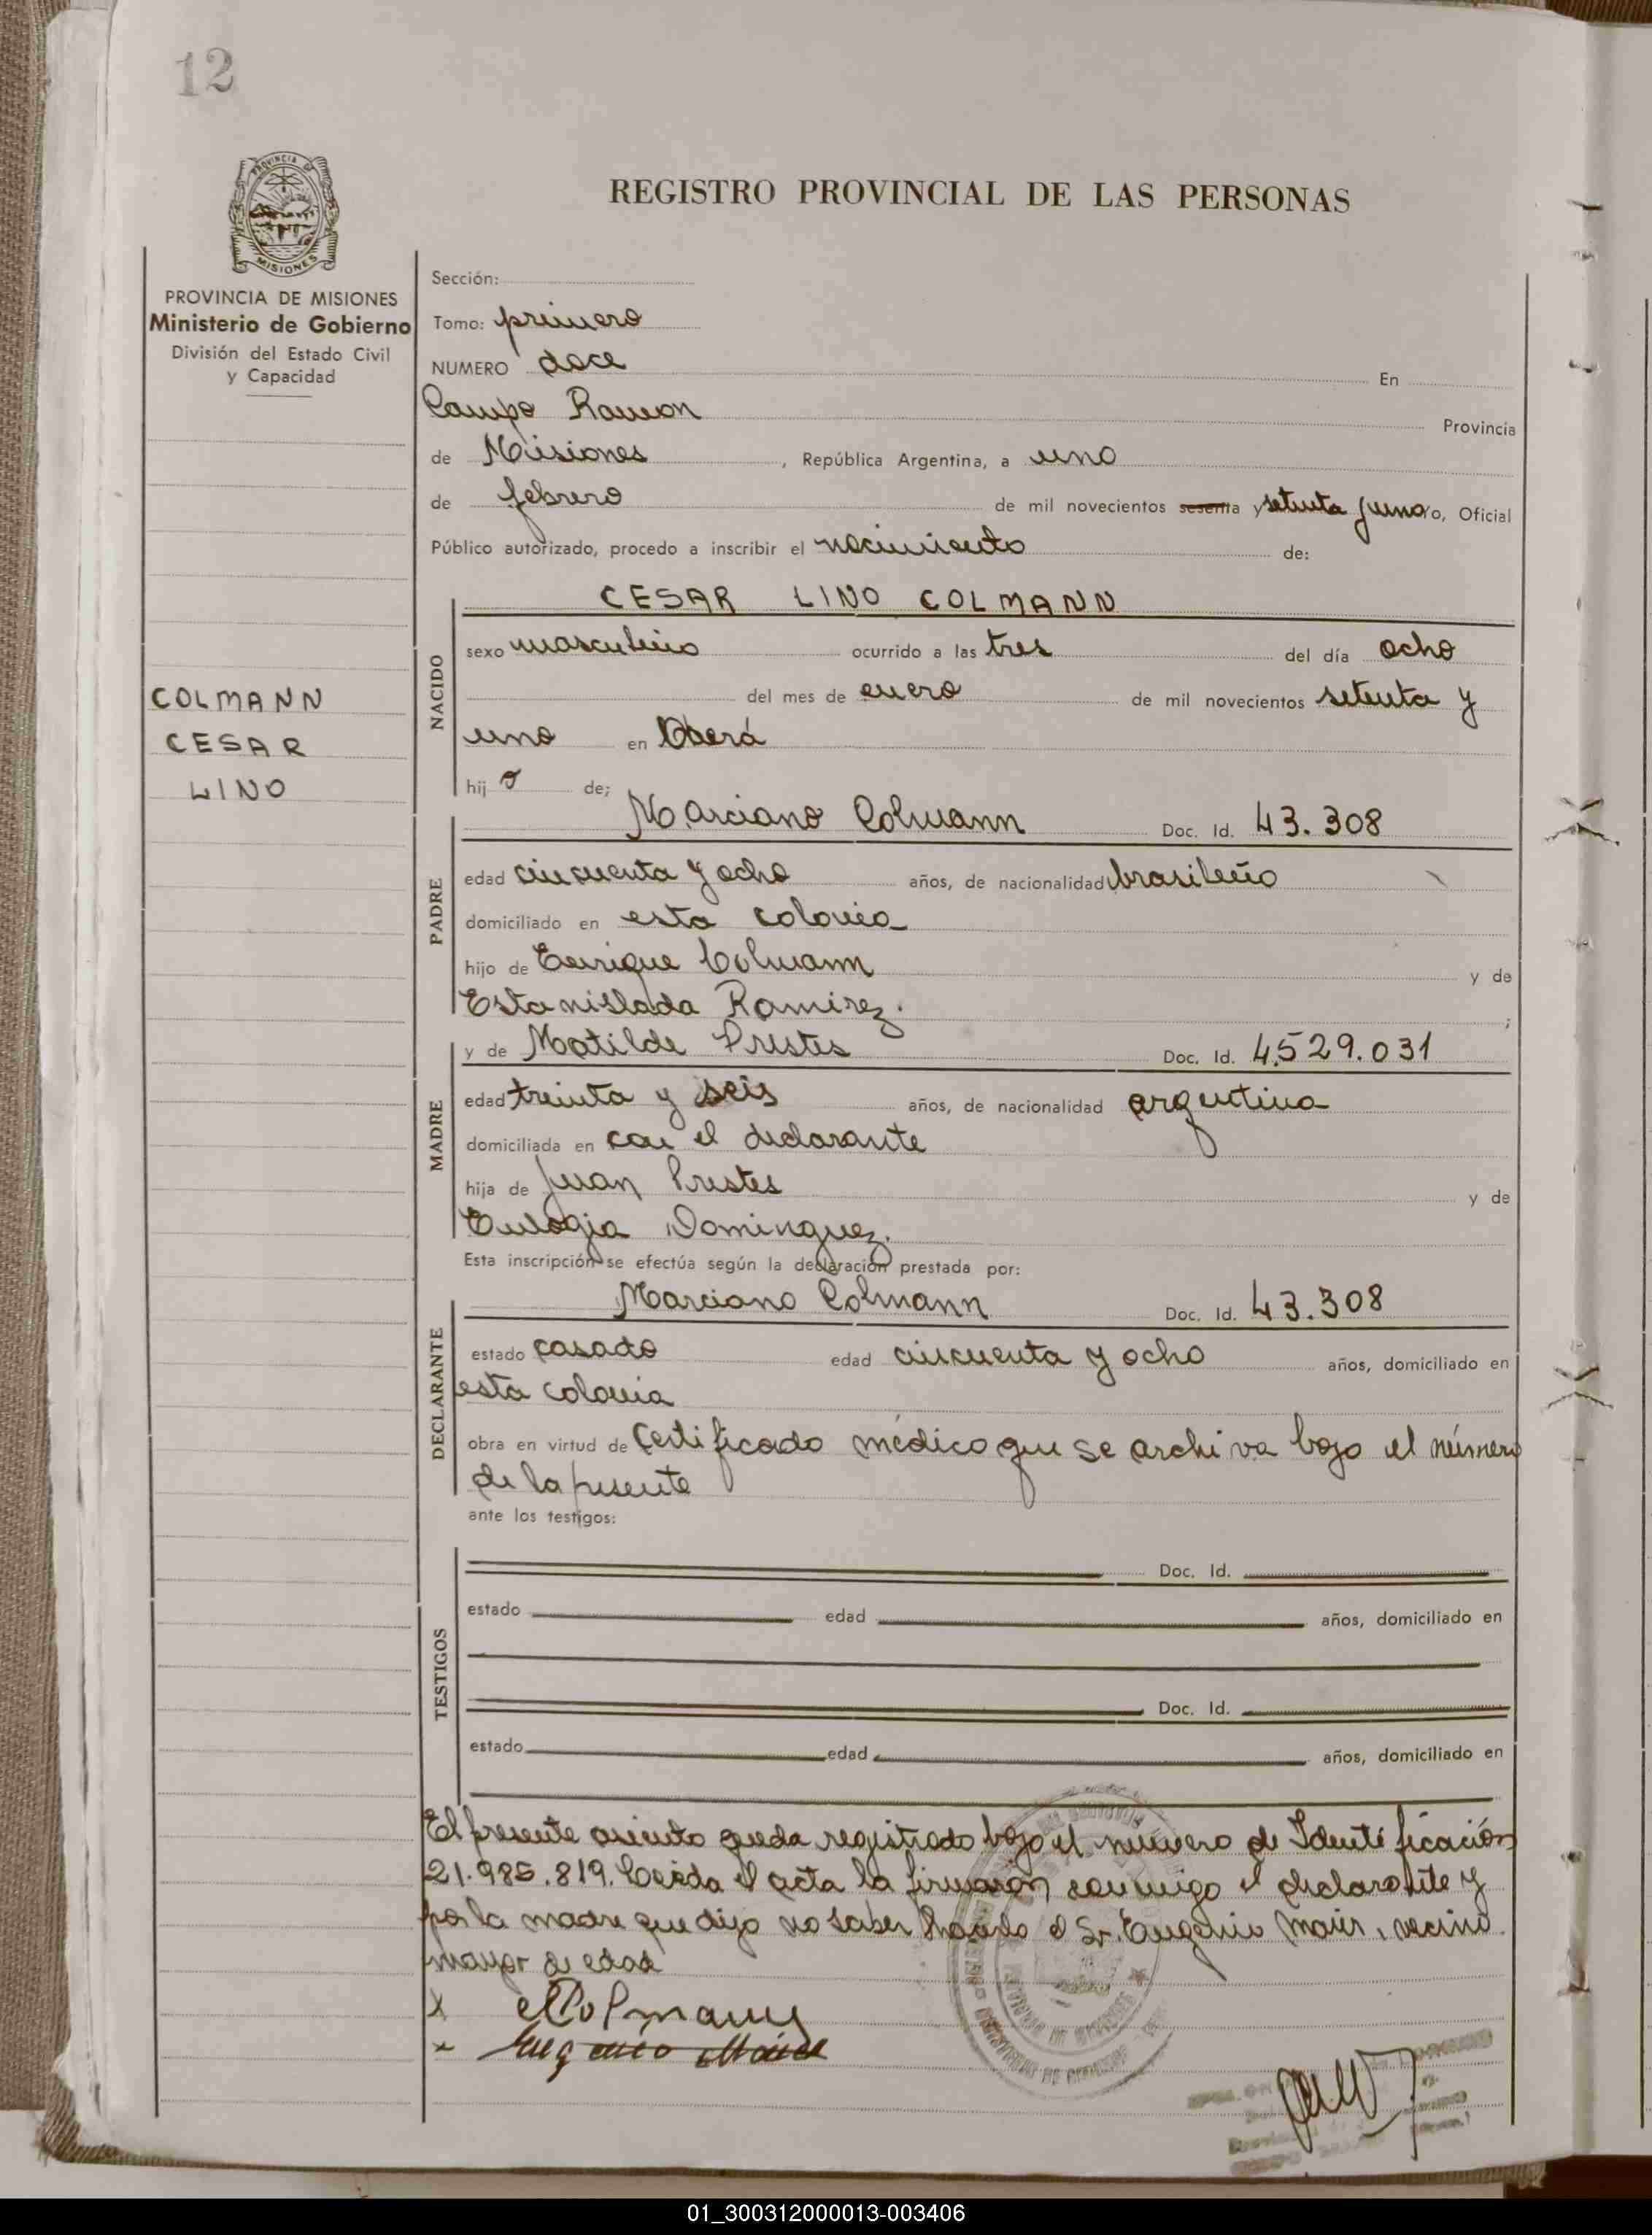 12
PROVINCIA DE
MISIONES
REGISTRO PROVINCIAL DE LAS PERSONAS
PROVINCIA DE MISIONES
Ministerio de Gobierno
División del Estado Civil
y Capacidad
COLMANN
CESAR
LINO
Sección:
Tomo: primero
NUMERO doce En
Campo Ramon Provincia
de Misiones, República Argentina, a uno
de febrero de mil novecientos sesenta y setenta y uno yo, Oficial
Público autorizado, procedo a inscribir el nacimiento de:
CESAR LINO COLMANN
NACIDO
sexo masculino ocurrido a las tres del día ocho
del mes de enero de mil novecientos setenta y
uno en Oberá
hijo de;
Marciano Colmann Doc. Id. 43.308
PADRE
edad cincuenta y ocho años, de nacionalidad brasileño
domiciliado en esta colonia
hijo de Enrique Colmann y de
Estanislada Ramirez.;
y de Matilde Prestes Doc. Id. 4.529.031
MADRE
edad treinta y seis años, de nacionalidad argentina
domiciliada en con el declarante
hija de Juan Prestes y de
Eulogia Dominguez.
Esta inscripción se efectúa según la declaración prestada por:
Marciano Colmann Doc. Id. 43.308
DECLARANTE
estado casado edad cincuenta y ocho años, domiciliado en
esta colonia
obra en virtud de Certificado médico que se archiva bajo el número
de la presente
ante los testigos:
TESTIGOS
Doc. Id.
estado edad años, domiciliado en
Doc. Id.
estado edad años, domiciliado en
El presente asiento queda registrado bajo el numero de Identificación
21.985.819. Leida el acta la firmaron conmigo el declarante y
por la madre que dijo no saber hacerlo el Sr. Eugenio Maier, vecino
mayor de edad
x Colmann
x Eugenio
01_300312000013-003406